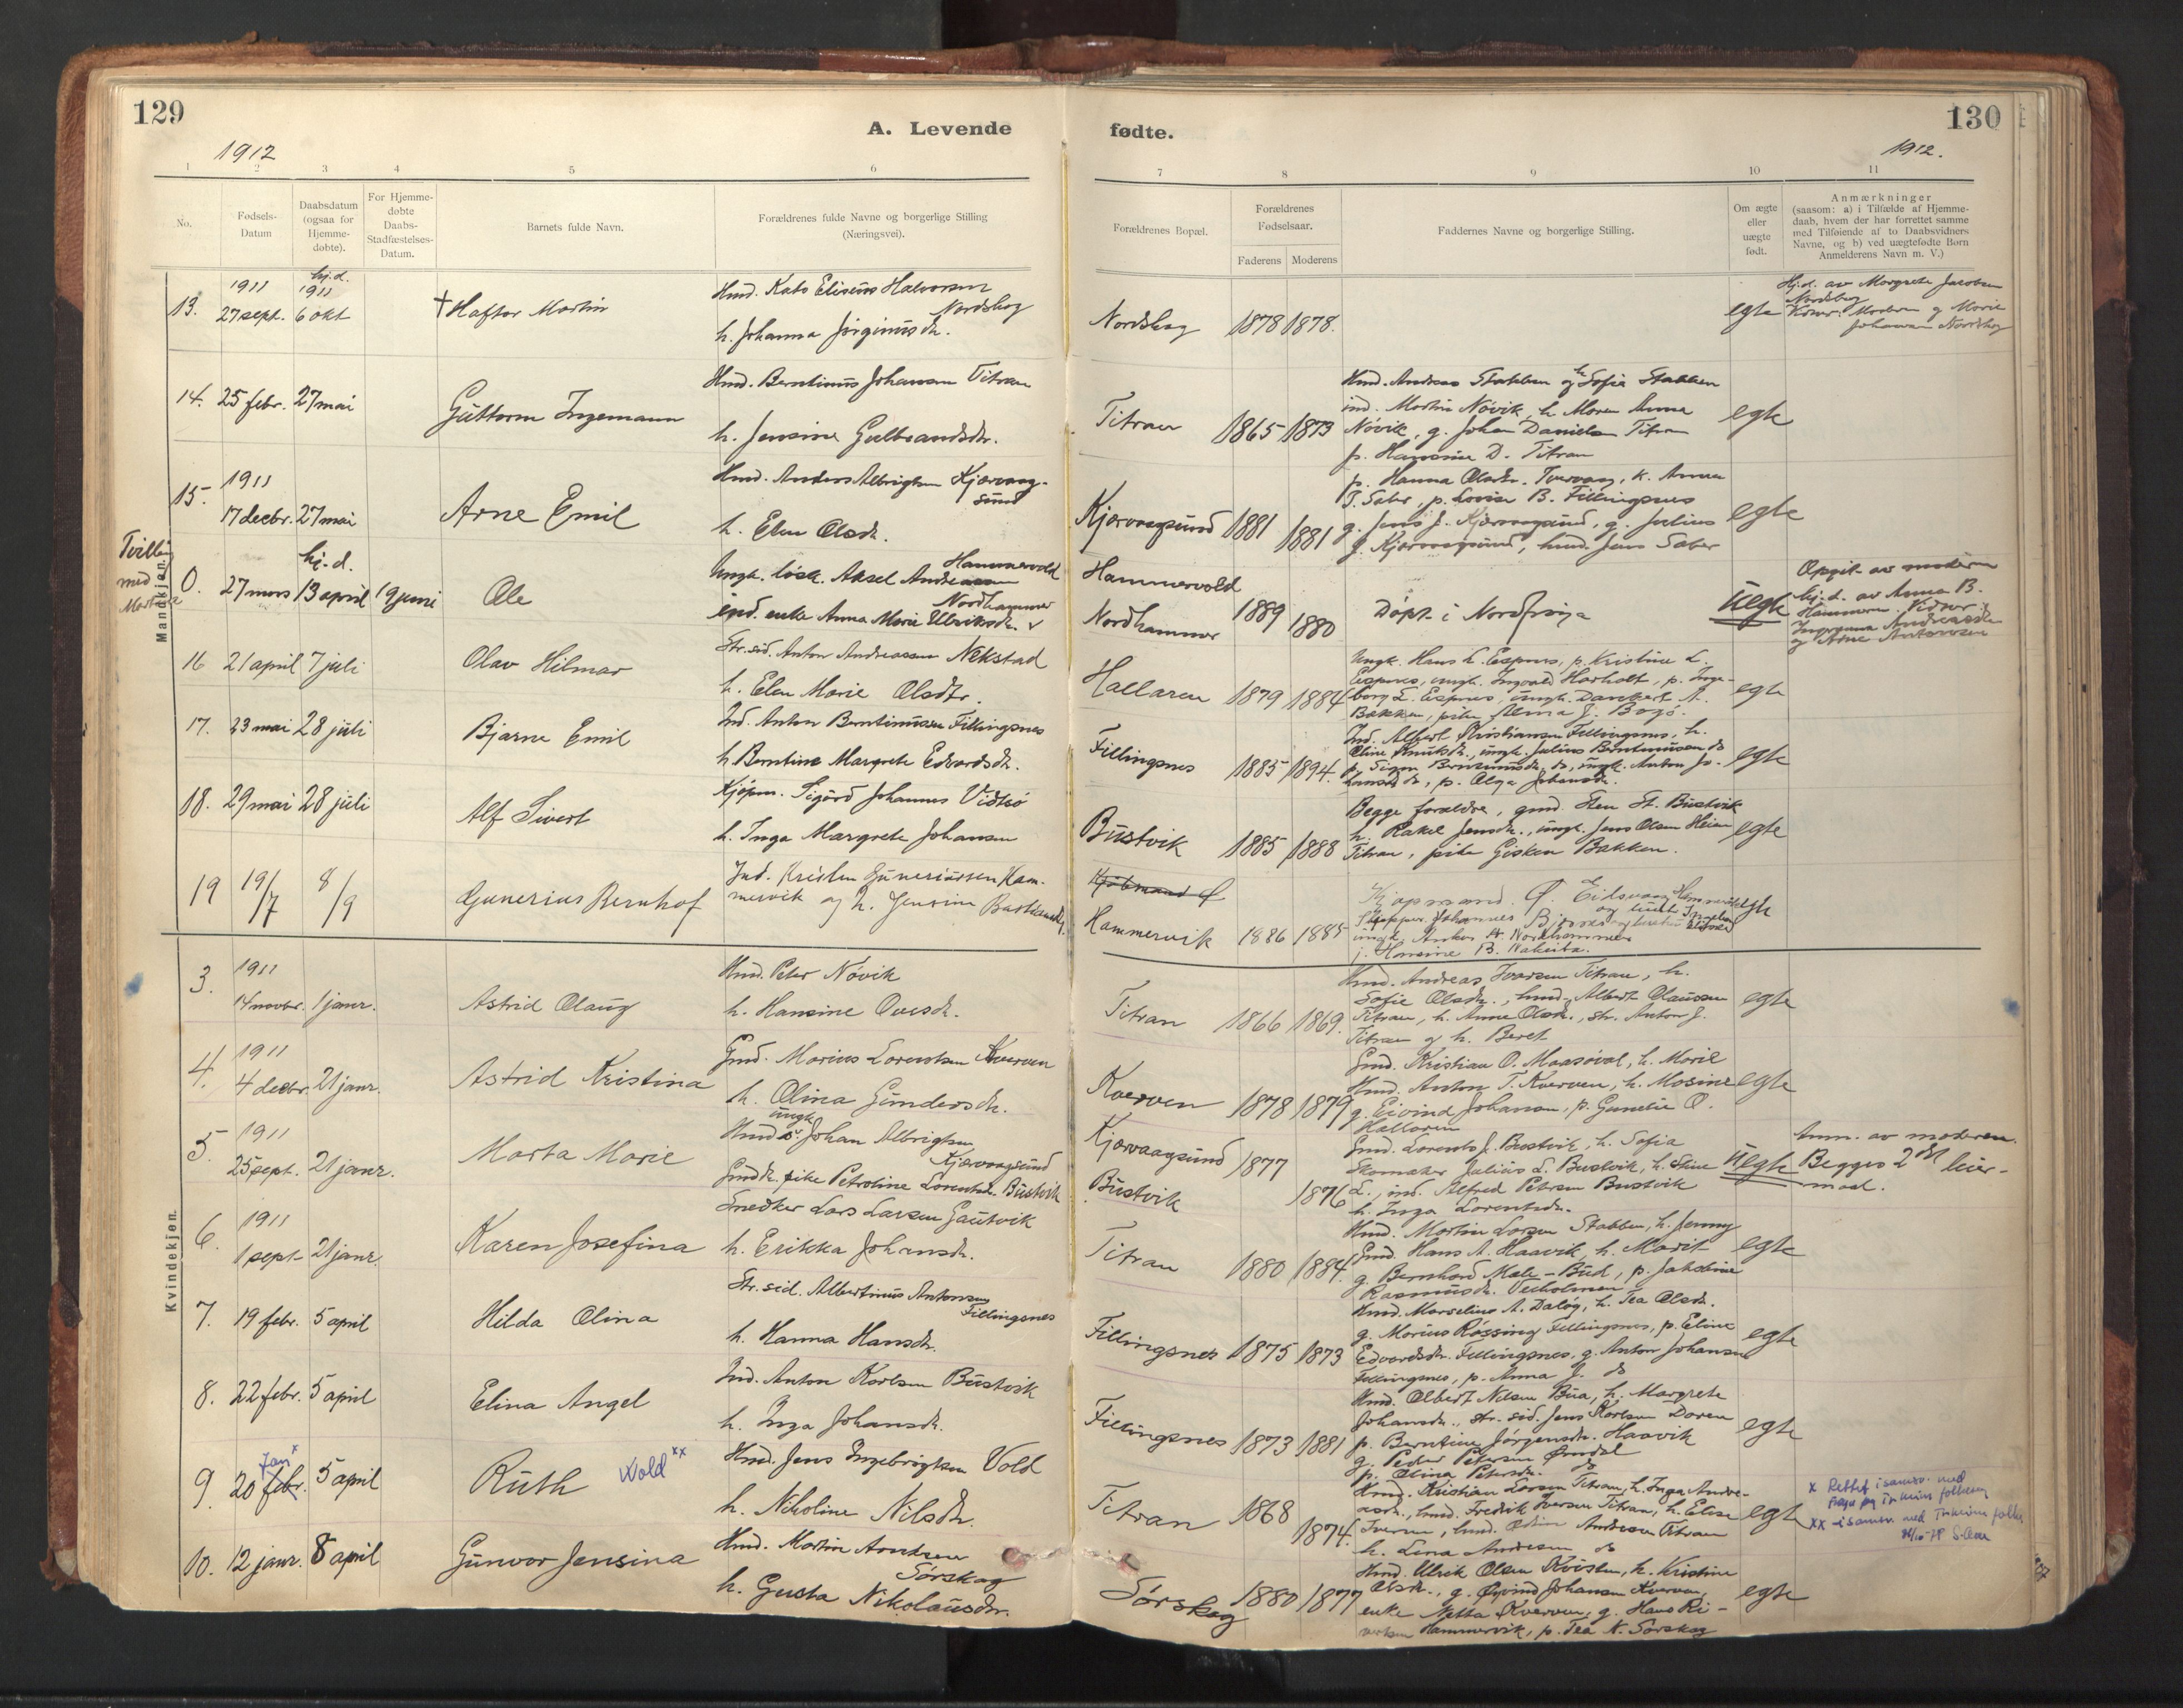 129
A. Levende
fødte.
130
1912
1912.
1
2
3
4
5
6
7
8
9
10
11
No.
Fødsels-
Datum
Daabsdatum
(ogsaa for
Hjemme-
døbte).
For Hjemme-
døbte
Daabs-
Stadfæstelses-
Datum.
Barnets fulde Navn.
Forældrenes fulde Navne og borgerlige Stilling
(Næringsvei).
Forældrenes Bopæl.
Forældrenes
Fødselsaar.
Faderens
Moderens
Faddernes Navne og borgerlige Stilling.
Om ægte
eller
uægte
født.
Anmærkninger
(saasom: a) i Tilfælde af Hjemme-
daab, hvem der har forrettet samme
med Tilføiende af to Daabsvidners
Navne, og b) ved uægtefødte Børn
Anmelderens Navn m. V.)
Mandkjøn.
1911 hj.d. 1911
13. 27 sept. 6 okt †Haftor Martin
Nordskog
h. Johanna
Nordskog 1878 1878. egte
Hj.d. av Margrete Jacobsen
Nordskog
14. 25 febr. 27 mai Guttorm Ingemann
Hmd. Berntinus Johansen Titran
h. Jensine Gulbrandsdtr.
Titran 1865 1873
Hmd. Andreas Stabben og h. Sofie Stabben
ind. Martin Nøvik, h. Maren Anna
Nøvik, g. Johan Danielsen Titran
p. Hansine D. Titran
egte
1911
15. 17 decbr. 27 mai Arne Emil
Hmd. Anders Albrigtsen Kjærvaag-
sund
h. Elen Olsdtr.
Kjærvaagsund 1881 1881
p. Lovise B. Fillingsnes
g. Jens J. Kjærvaagsund, g. Julius
J. Kjærvaagsund, hmd. Jens Saber
egte
Tvilling
med
hj.d.
0. 27 mars 13 april 19 juni Ole
Ungk. løsk. Aksel Andreassen Hammervold
ind. enke Anna Marie Ulriksdtr. Nordhammer
Hammervold
Nordhammer 1889 1880
Døpt i Nordfrøya
uegte
Opgit av moderen
hj.d. av Anna B.
Hammern. Vidner:
og Arne Antonsen
16 21 april 7 juli Olav Hilmar
Str.sid. Anton Andreassen Nekstad
h. Elen Marie Olsdtr.
Hallaren 1879 1884
Ungk. Hans L. Espnes, p. Kristine L.
Espnes, ungk. Ingvald Harholt, p. Inge-
borg L. Espnes, ungk. Dankert A.
Bakken, pike Alma J. Bogø.
egte
17. 23 mai 28 juli Bjarne Emil
Ind. Anton Berntinussen Fillingsnes
h. Berntine Margrete Edvardsdtr.
Fillingsnes 1885 1894.
Ind. Albert Kristiansen Fillingsnes, h.
Oline Knutsdtr., ungk. Julius Berntinussen do
egte
18. 29 mai 28 juli Alf Sivert
Kjøpm. Sigurd Johannes Vidtsø
h. Inga Margrete Johansen
Bustvik 1885 1888
Begge foreldre, gmd. Sten St. Bustvik
h. Rakel Jensdtr., ungk. Jens Olsen Heien
Titran, pike Gisken Bakken.
egte
19 19/7 8/9 Gunerius Bernhof
Ind. Kristen Guneriussen Ham-
mervik og h. Jensine
Hammervik 1886 1885
Kjøpmand Ø. Eidsvaag Hammervik
p. Hansine B.
egte
Kvindekjøn.
1911
3. 14 novbr. 1 janr. Astrid Olaug
Hmd. Peter Nøvik
h. Hansine Ovesdtr.
Titran 1866 1869.
Hmd. Andreas Iversen Titran, h.
Sofie Olsdtr., hmd. Albert Olaussen
Titran, h. Anne Olsdtr., str. Anton J.
Titran og h. Beret
egte
1911
4. 4 decbr. 21 janr. Astrid Kristina
Gmd. Marius Lorentsen Kverven
h. Olina Gundersdtr.
Kverven 1878 1879
Gmd. Kristian O. Maasøval, h. Marie
Hmd. Anton T. Kverven, h. Mosine
g. Eivind Johansen, p. Gunelie O.
Hallaren
egte
1911
5. 25 sept. 21 janr. Marta Marie
ungk.
Hmd.s. Johan Albrigtsen
Kjærvaagsund
Gmdtr. pike Petroline Lorentsdtr. Bustvik
Kjærvaagsund
Bustvik 1877 1876
Gmd. Lorents J. Bustvik, h. Sofia
Skomaker Julius L. Bustvik, h. Stine
L., ind. Alfred Petersen Bustvik
h. Inga Lorentsdtr.
uegte
Anm. av moderen.
Begges 2det leier-
maal.
1911
6. 1 sept. 21 janr. Karen Josefina
Snedker Lars Larsen Gautvik
h. Erikka Johansdtr.
Titran 1880 1884.
Hmd. Martin Larsen Stabben, h. Jenny
Gmd. Hans A. Haavik, h. Marit
g. Bernhard Male - Bud, p. Jakobine
Rasmusdtr. Veiholmen
egte
7. 19 febr. 5 april Hilda Olina
Str.sid. Albertinus Antonsen
Fillingsnes
h. Hanna Hansdtr.
Fillingsnes 1875 1873
Hmd. Marselius A. Daløy, h. Tea Olsdtr.
g. Marius Røssing Fillingsnes, p. Eline
Edvardsdtr. Fillingsnes, g. Anton Johansen
Fillingsnes, p. Anna J. do
egte
8. 22 febr. 5 april Elina Angel
Ind. Anton Karlsen Bustvik
h. Inga Johansdtr.
Fillingsnes 1873 1881
Hmd. Olbert Nilsen Bua, h. Margrete
Johansdtr., str.sid. Jens Karlsen Doren
p. Berntine Jørgensdtr. Haavik
g. Peder Petersen Ørndal
p. Olina Petersdtr. do
egte
Jan x
9. 20 febr. 5 april Ruth Wold xx
Hmd. Jens Ingebrigtsen Vold
h. Nikoline Nilsdtr.
Titran 1868 1874.
Hmd. Kristian Larsen Titran, h. Inga Andre-
asdtr., hmd. Fredrik Iversen Titran, h. Elise
Iversen, hmd. Edin Andresen Titran
h. Lena Andresen do
egte
x Rettet i samsv. med
xx i samsv. med
10. 12 janr. 8 april Gunvor Jensina
Hmd. Martin Arntsen
Sørskag
h. Gusta Nikolausdtr.
Sørskag 1880 1877
Hmd. Ulrik Olsen Kvisten, h. Kristine
Olsdtr., g. Øyvind Johansen Kverven,
enke Netta Kverven, g. Hans Ri-
Hammervik, p. Tea N. Sørskag
egte